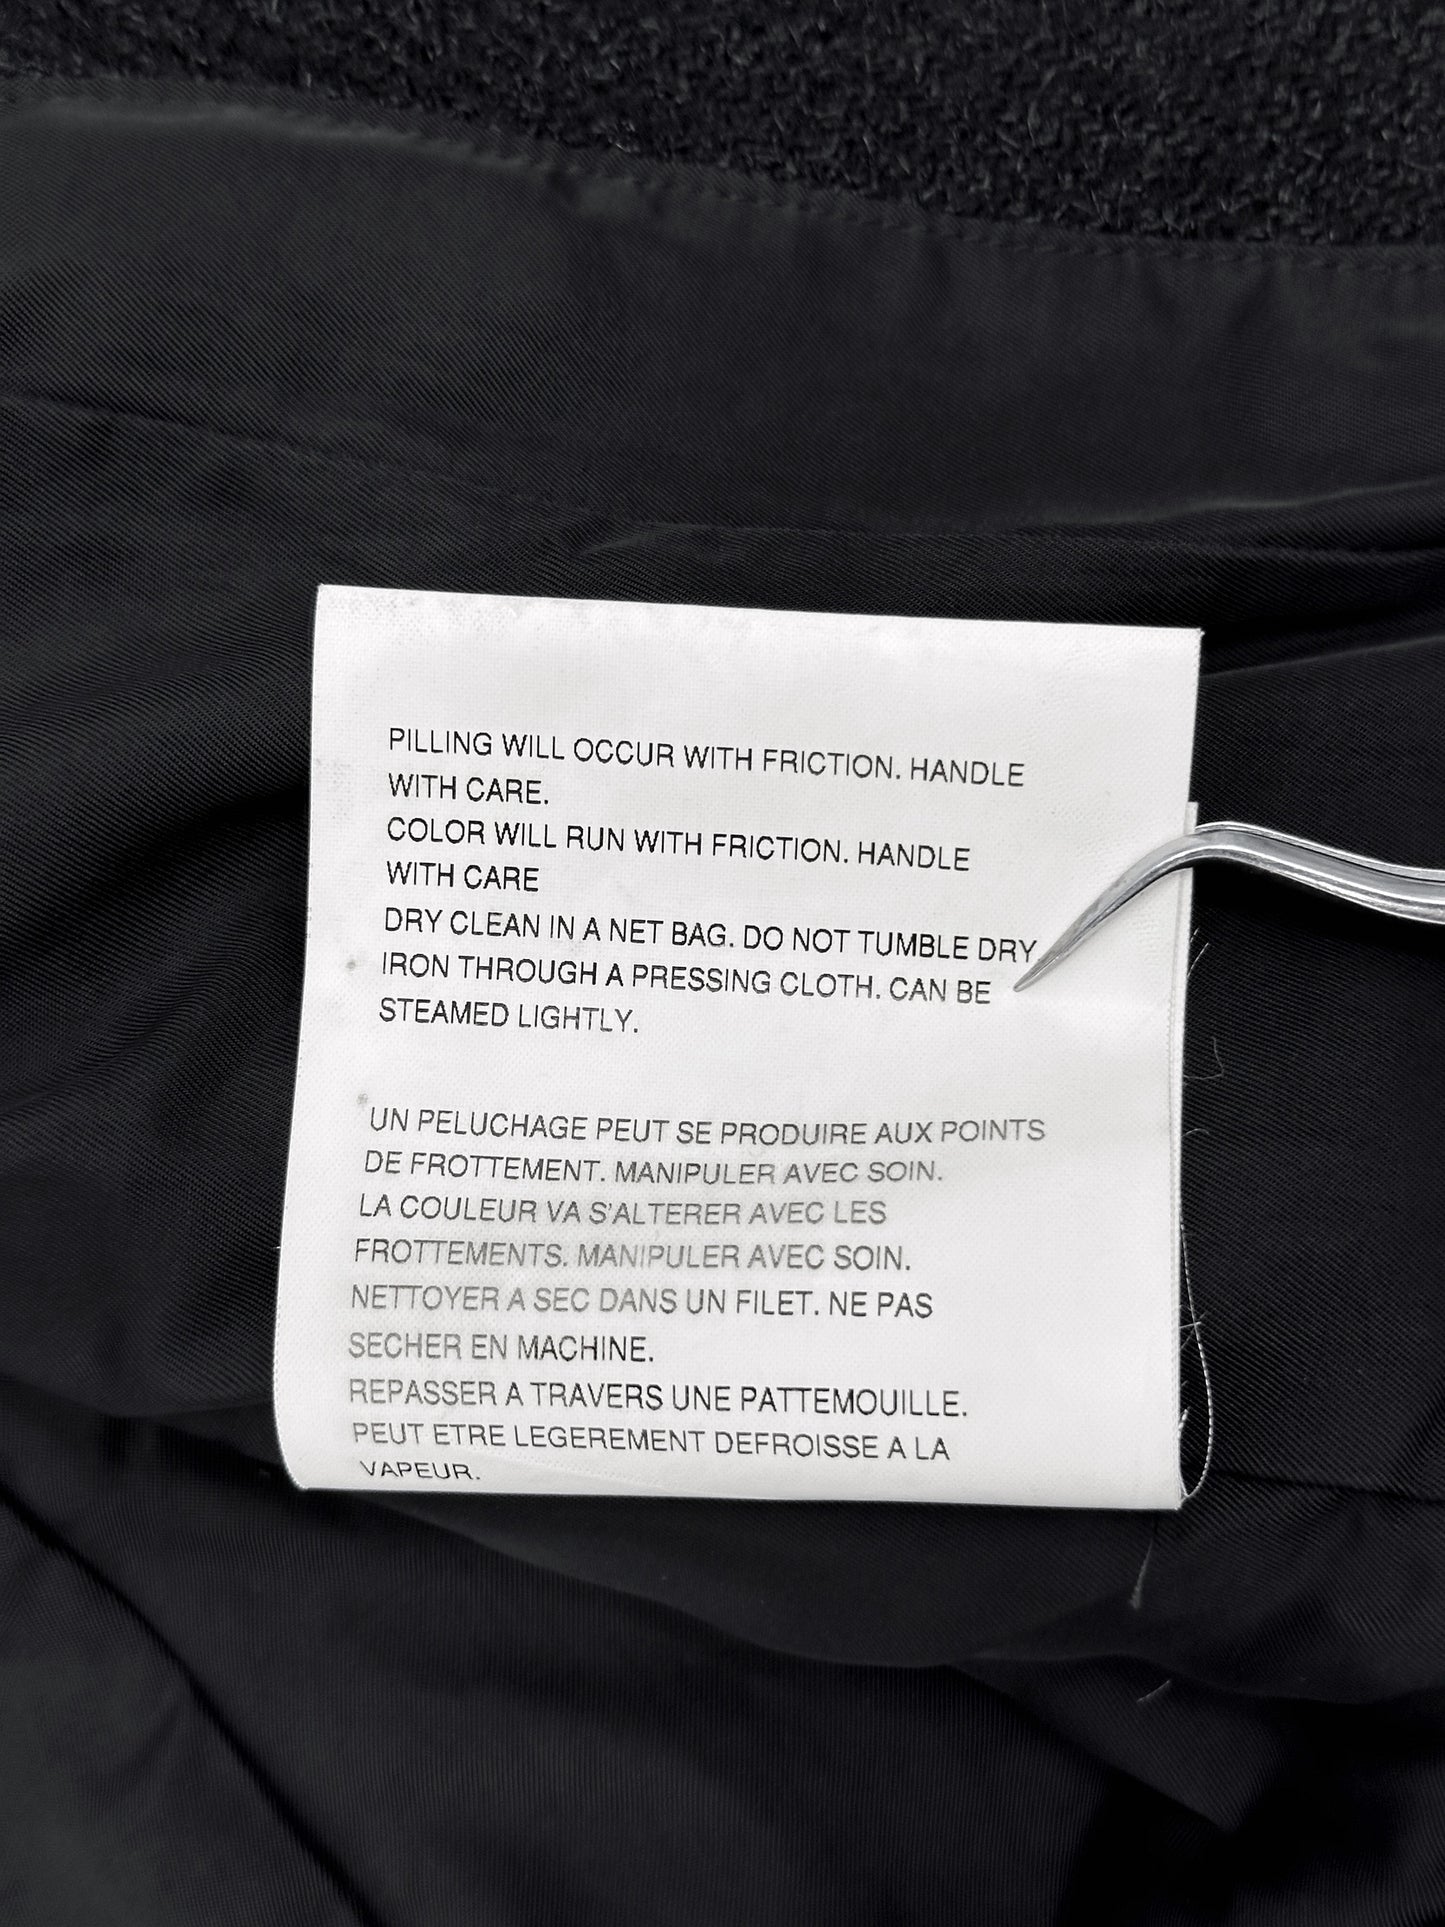 PILLING WILL OCCUR WITH FRICTION. HANDLE
WITH CARE.
COLOR WILL RUN WITH FRICTION. HANDLE
WITH CARE
DRY CLEAN IN A NET BAG. DO NOT TUMBLE DRY
IRON THROUGH A PRESSING CLOTH. CAN BE
STEAMED LIGHTLY.
UN PELUCHAGE PEUT SE PRODUIRE AUX POINTS
DE FROTTEMENT. MANIPULER AVEC SOIN.
LA COULEUR VA S'ALTERER AVEC LES
FROTTEMENTS. MANIPULER AVEC SOIN.
NETTOYER A SEC DANS UN FILET. NE PAS
SECHER EN MACHINE.
REPASSER A TRAVERS UNE PATTEMOUILLE.
PEUT ETRE LEGEREMENT DEFROISSE A LA
VAPEUR.